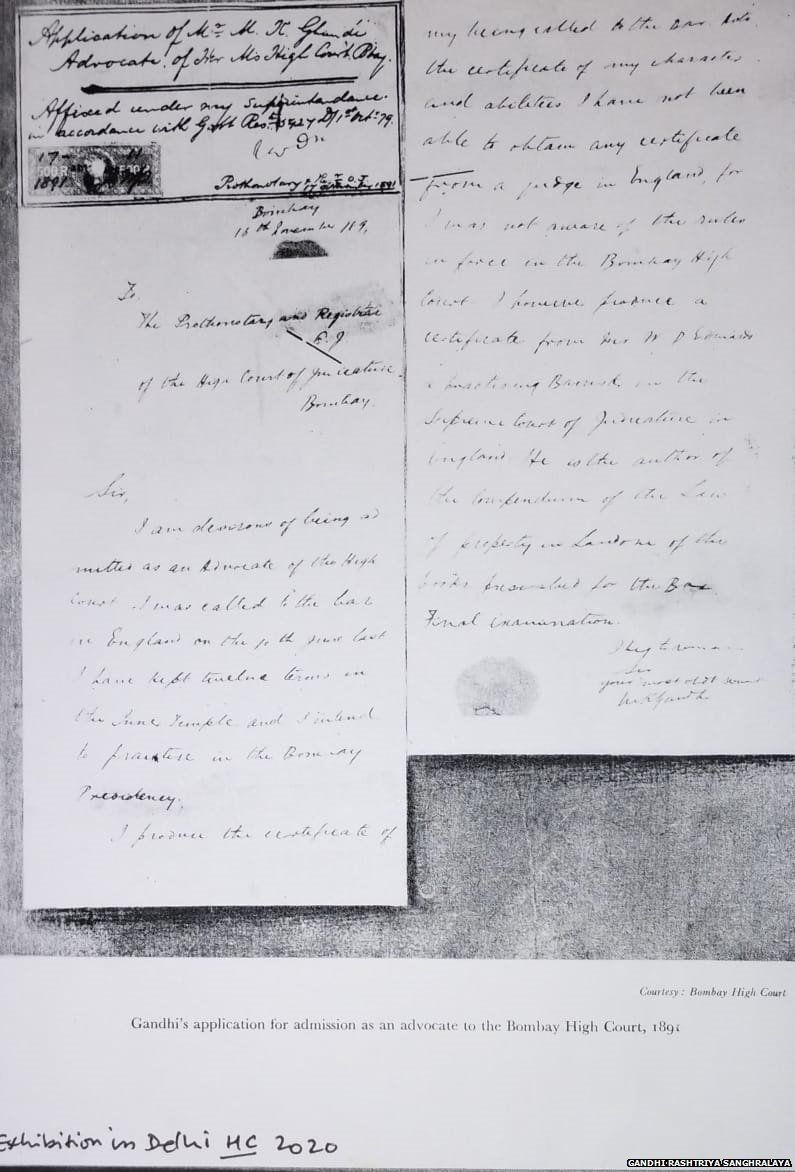 Application of Mr M. K. Ghandi
Advocate, of Her M's High Court, Bby.
Affixed under my Superintendance
in accordance with Govt Res: 5927 D/ 1st Oct 79.
17- 11
1891
Prothonotary
Bombay
16th November 189,
To,
The Prothonotary and Registrar
of the High Court of Judicature
Bombay.
Sir,
I am desirous of being ad
mitted as an Advocate of the High
Court. I was called to the bar
in England on the 10th June last
I have kept twelve terms in
the Inner Temple and I intend
to practise in the Bombay
Presidency.
I produce the certificate of
my being called to the Bar. As to
the certificate of my character
and abilities I have not been
able to obtain any certificate
from a judge in England, for
I was not aware of the rules
in force in the Bombay High
Court. I however produce a
certificate from Mr W D Edwards
a practising Barrister in the
Supreme Court of Judicature in
England. He is the author of
the Compendium of the Law
of property in Land one of the
books prescribed for the Bar
Final examination.
I beg to remain
Sir
your most obdt servant
M K Gandhi
Courtesy: Bombay High Court
Gandhi's application for admission as an advocate to the Bombay High Court, 1891
Exhibition in Delhi HC 2020
GANDHI RASHTRIYA SANGHRALAYA